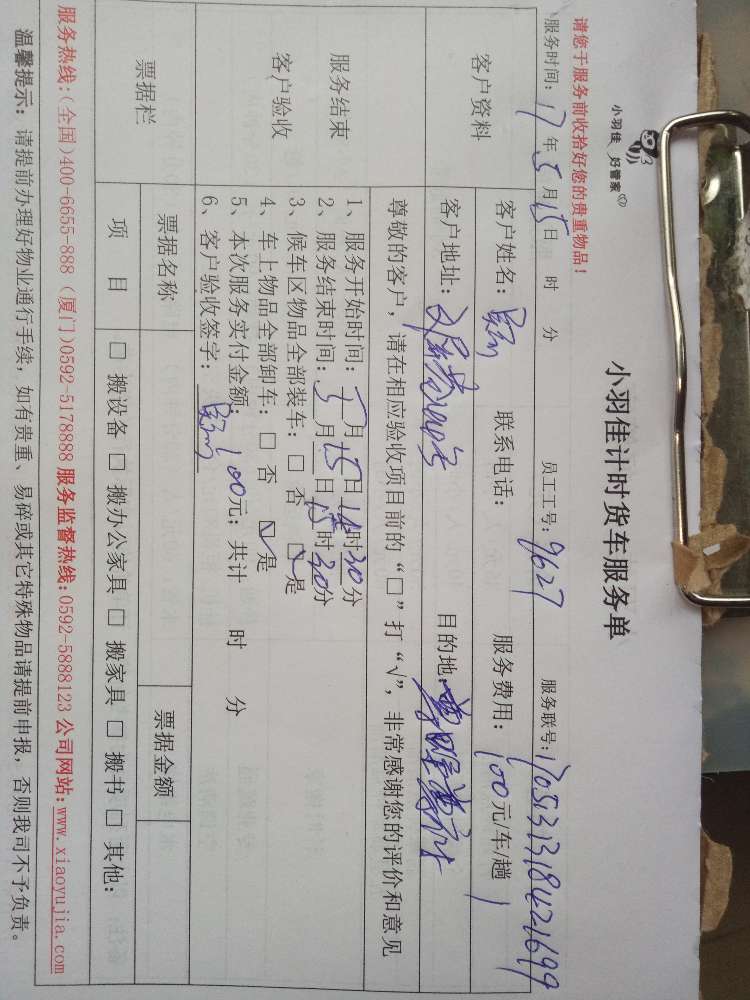 小羽佳 好管家
小羽佳计时货车服务单
请您于服务前收拾好您的贵重物品！
服务时间：17年5月15日 时 分 员工工号：9627 服务联号：170513131842-1699
客户资料
客户姓名： 联系电话： 服务费用：100元/车/趟
客户地址： 目的地：
尊敬的客户，请在相应验收项目前的“□”打“√”，非常感谢您的评价和意见
服务结束
客户验收
1、服务开始时间：5月15日14时30分
2、服务结束时间：5月15日15时30分
3、候车区物品全部装车：□ 否 ☑ 是
4、车上物品全部卸车：□ 否 ☑ 是
5、本次服务实付金额：100元；共计 时 分
6、客户验收签字：
票据栏
票据名称 票据金额
项 目 □ 搬设备 □ 搬办公家具 □ 搬家具 □ 搬书 □ 其他：
服务热线：(全国)400-6655-888 (厦门)0592-5178888 服务监督热线：0592-5888123 公司网站：www.xiaoyujia.com
温馨提示：请提前办理好物业通行手续，如有贵重、易碎或其它特殊物品请提前申报，否则我司不予负责。